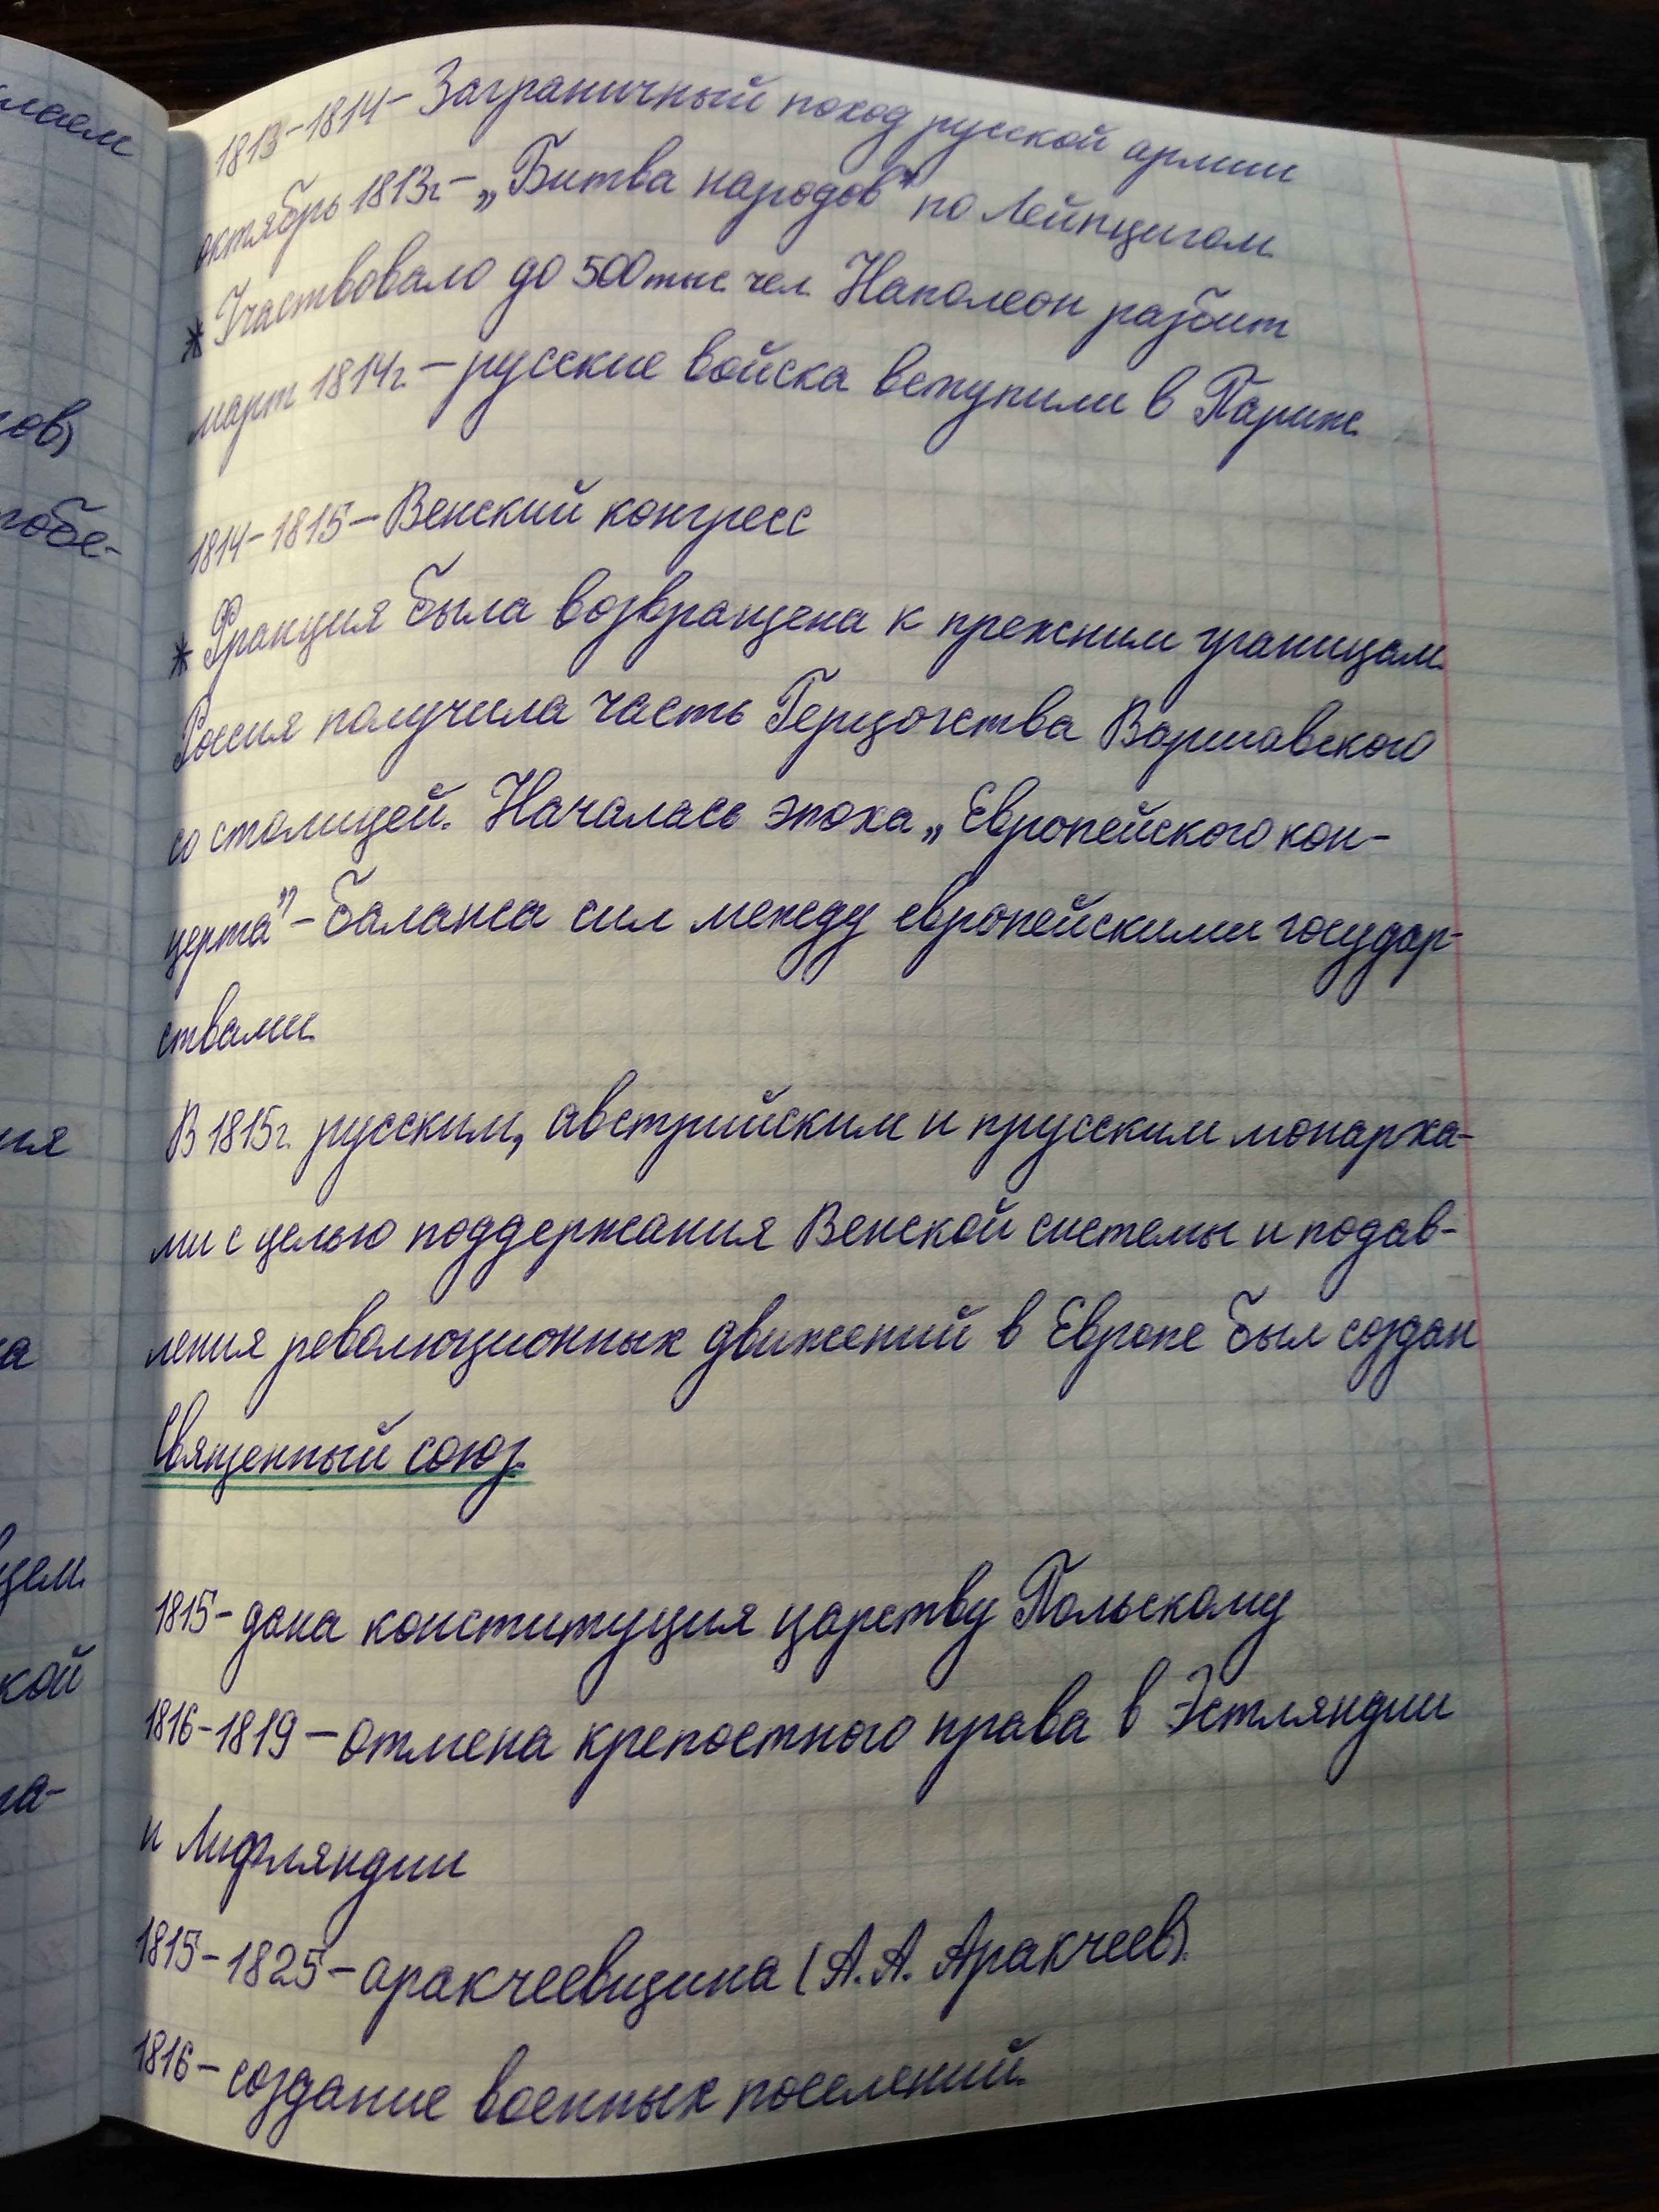 1813-1814- Заграничный поход русской армии
октябрь 1813г.- „Битва народов" по Лейпцигом.
* Участвовало до 500 тыс. чел. Наполеон разбит
март 1814г. - русские войска вступили в Париж.
1814-1815- Венский конгресс
* Франция была возвращена к прежним границам.
Россия получила часть Герцогства Варшавского
со столицей. Началась эпоха „Европейского кон-
церта" - баланса сил между европейскими государ-
ствами.
В 1815г. русским, австрийским и прусским монарха-
ми с целью поддержания Венской системы и подав-
ления революционных движений в Европе был создан
Священный союз.
1815- дана конституция царству Польскому
1816-1819 - отмена крепостного права в Эстляндии
и Лифляндии
1815-1825- аракчеевщина (А.А. Аракчеев).
1816- создание военных поселений.
лаем
гов)
побе-
ия
а
щем.
кой
на-